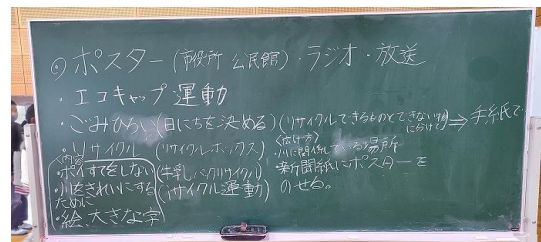 ◎ポスター(市役所 公民館)・ラジオ・放送
・エコキャップ運動
・ごみひろい(日にちを決める)(リサイクルできるものとできない物に分けて)⇒手紙で
・リサイクル(リサイクルボックス)
(牛乳パックリサイクル)
(リサイクル運動)
<内容>
・ポイすてをしない
・川をきれいにするために
・絵、大きな字
<広げ方>
・川に関係している場所
・新聞紙にポスターをのせる。